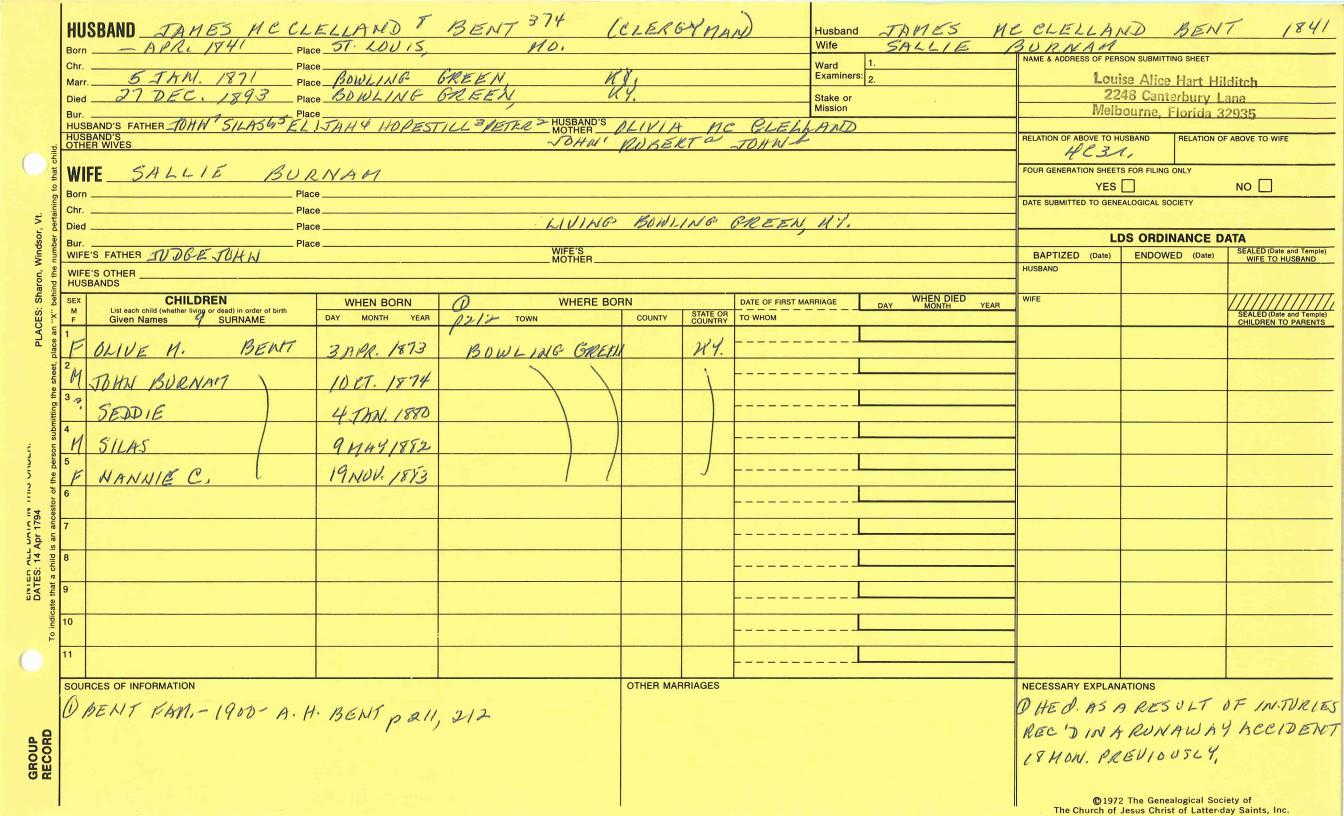 HUSBAND JAMES MC CLELLAND 8 BENT 374 (CLERGYMAN)
Born — APR. 1841 Place ST. LOUIS, MO.
Chr. Place
Marr. 5 JAN. 1871 Place BOWLING GREEN, KY.
Died 27 DEC. 1893 Place BOWLING GREEN, KY.
Bur. Place
HUSBAND'S FATHER JOHN 7 SILAS 6,5 ELIJAH 4 HOPESTILL 3 PETER 2 HUSBAND'S MOTHER OLIVIA MC CLELLAND
HUSBAND'S OTHER WIVES JOHN 1 ROBERT a JOHN b
WIFE SALLIE BURNAM
Born Place
Chr. Place
Died Place LIVING BOWLING GREEN, KY.
Bur. Place
WIFE'S FATHER JUDGE JOHN WIFE'S MOTHER
WIFE'S OTHER HUSBANDS
Husband JAMES MC CLELLAND BENT 1841
Wife SALLIE BURNAM
Ward Examiners: 1.
2.
Stake or Mission
NAME & ADDRESS OF PERSON SUBMITTING SHEET
Louise Alice Hart Hilditch
2248 Canterbury Lane
Melbourne, Florida 32935
RELATION OF ABOVE TO HUSBAND RELATION OF ABOVE TO WIFE
FOUR GENERATION SHEETS FOR FILING ONLY
YES NO
DATE SUBMITTED TO GENEALOGICAL SOCIETY
LDS ORDINANCE DATA
BAPTIZED (Date) ENDOWED (Date) SEALED (Date and Temple) WIFE TO HUSBAND
HUSBAND
WIFE
SEALED (Date and Temple) CHILDREN TO PARENTS
SEX M F CHILDREN WHEN BORN ① WHERE BORN DATE OF FIRST MARRIAGE WHEN DIED
List each child (whether living or dead) in order of birth
Given Names 9 SURNAME DAY MONTH YEAR p212 TOWN COUNTY STATE OR COUNTRY TO WHOM DAY MONTH YEAR
1 F OLIVE M. BENT 3 APR. 1873 BOWLING GREEN KY.
2 M JOHN BURNAM 1 OCT. 1874
3 SEDDIE 4 JAN. 1880
4 M SILAS 9 MAY 1882
5 F NANNIE C. 19 NOV. 1883
6
7
8
9
10
11
SOURCES OF INFORMATION
① BENT FAM.- 1900- A. H. BENT p 211, 212
OTHER MARRIAGES
NECESSARY EXPLANATIONS
① HE d. AS A RESULT OF INJURIES
REC'D IN A RUNAWAY ACCIDENT
18 MON. PREVIOUSLY.
©1972 The Genealogical Society of
The Church of Jesus Christ of Latter-day Saints, Inc.
PLACES: Sharon, Windsor, Vt.
To indicate that a child is an ancestor of the person submitting the sheet, place an "X" behind the number pertaining to that child.
ENTER ALL DATA IN THIS ORDER:
DATES: 14 Apr 1794
GROUP RECORD